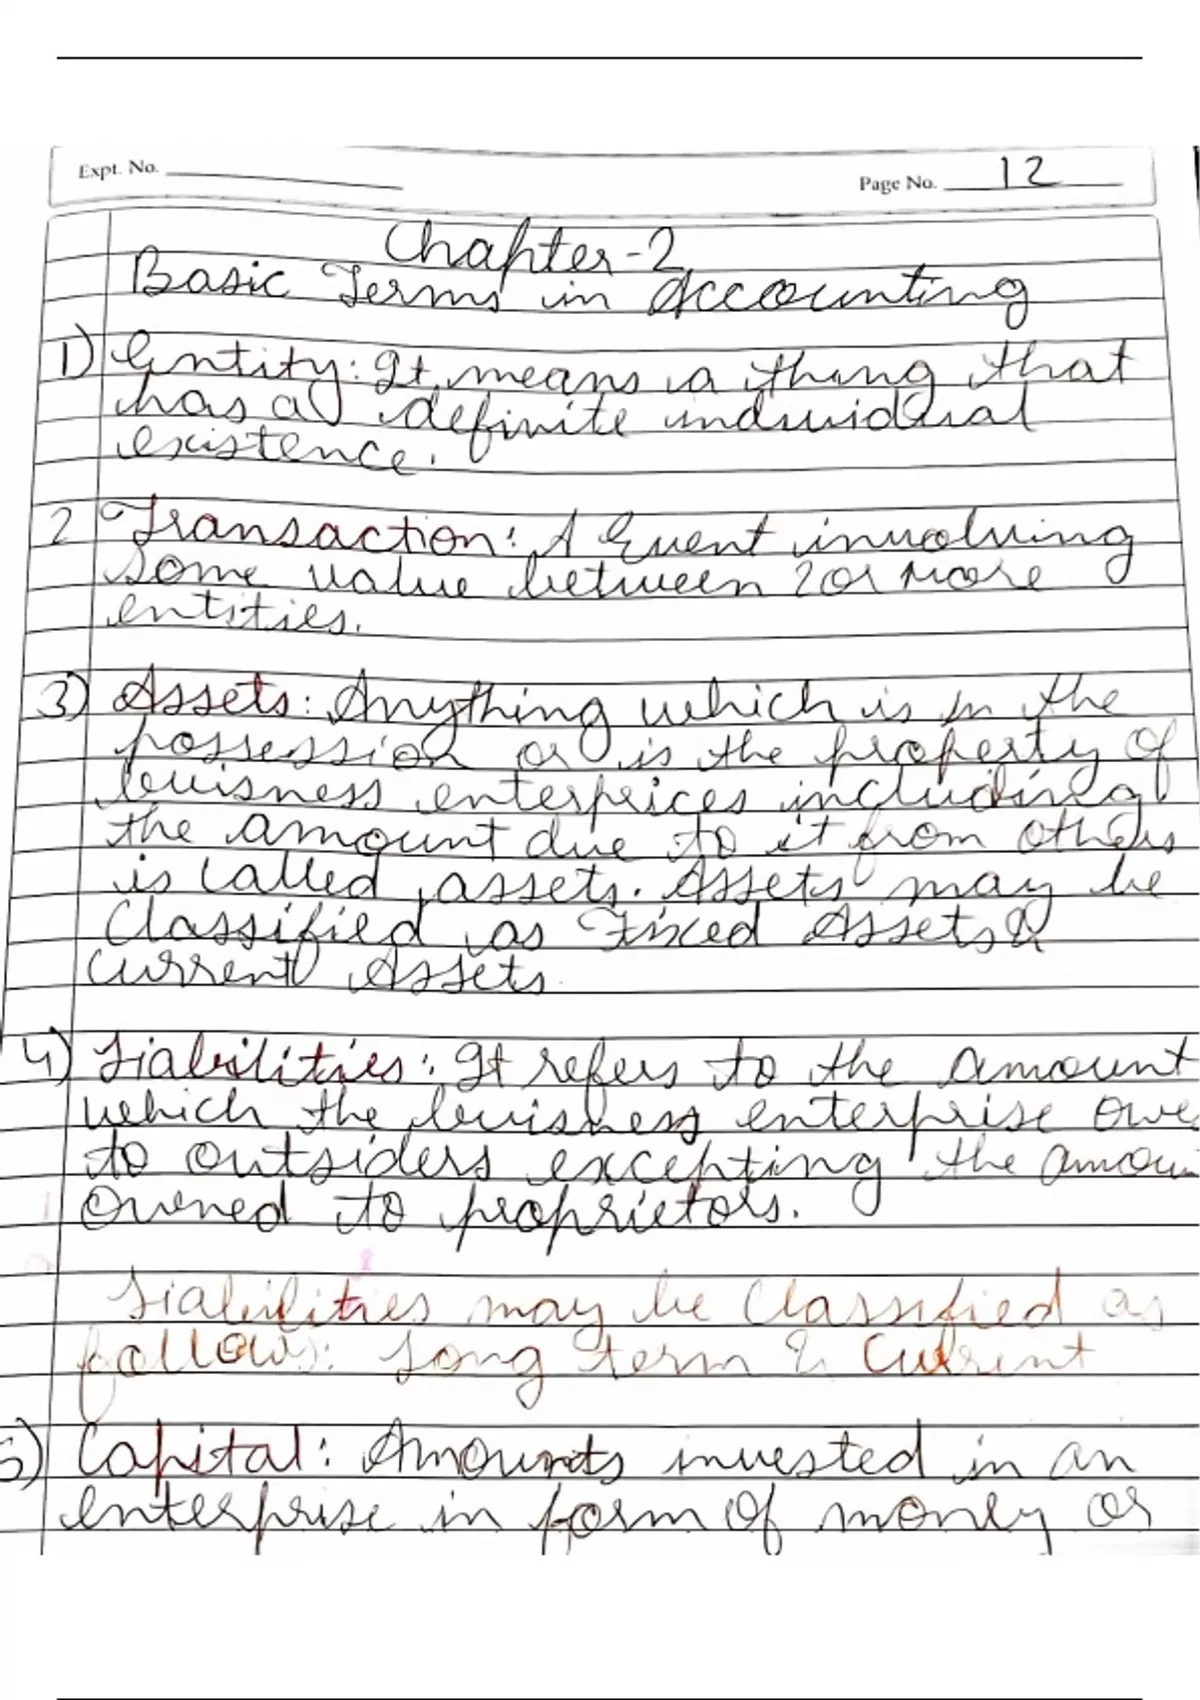 Expt. No.
Page No. 12
Chapter-2
Basic Terms in Accounting
1) Entity: It means a thing that
has a definite individual
existence.
2 Transaction: A Event involving
some value between 2 or more
entities.
3) Assets: Anything which is in the
possession or is the property of
buisness enterprices including
the amount due to it from others
is called assets. Assets may be
Classified as Fixed Assets &
Current Assets.
4) Liabilities: It refers to the amount
which the buisness enterprise owe
to outsiders excepting the amoun
owned to proprietors.
Liabilities may be Classified as
follows: Long term & Current
5) Capital: Amounts invested in an
enterprise in form of money or